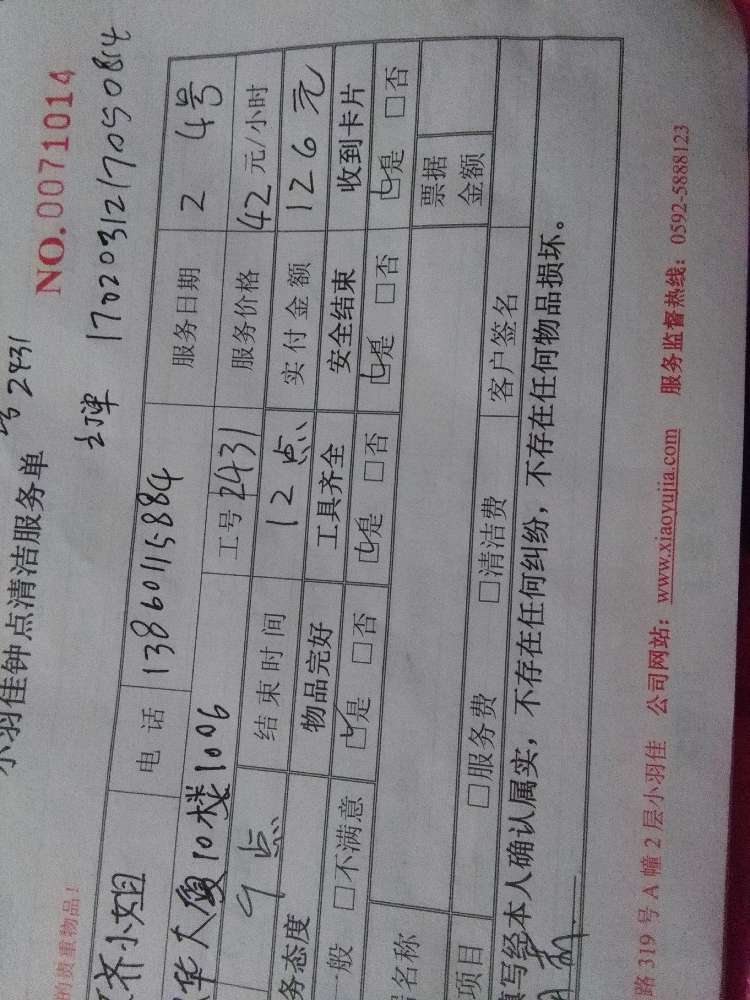 小羽佳钟点清洁服务单 号 2431
NO.0071014
主单 17020312170508​14
的贵重物品！
齐小姐 电话 13860115884 服务日期 2 4号
华大厦10楼1006 工号 2431 服务价格 42 元/小时
9点 结束时间 12点 实付金额 126元
务态度 物品完好 工具齐全 安全结束 收到卡片
般 □不满意 ☑是 □否 ☑是 □否 ☑是 □否 ☑是 □否
名称 票据金额
项目 □服务费 □清洁费 客户签名
填写经本人确认属实，不存在任何纠纷，不存在任何物品损坏。
路 319 号 A 幢 2 层小羽佳 公司网站：www.xiaoyujia.com 服务监督热线：0592-5888123